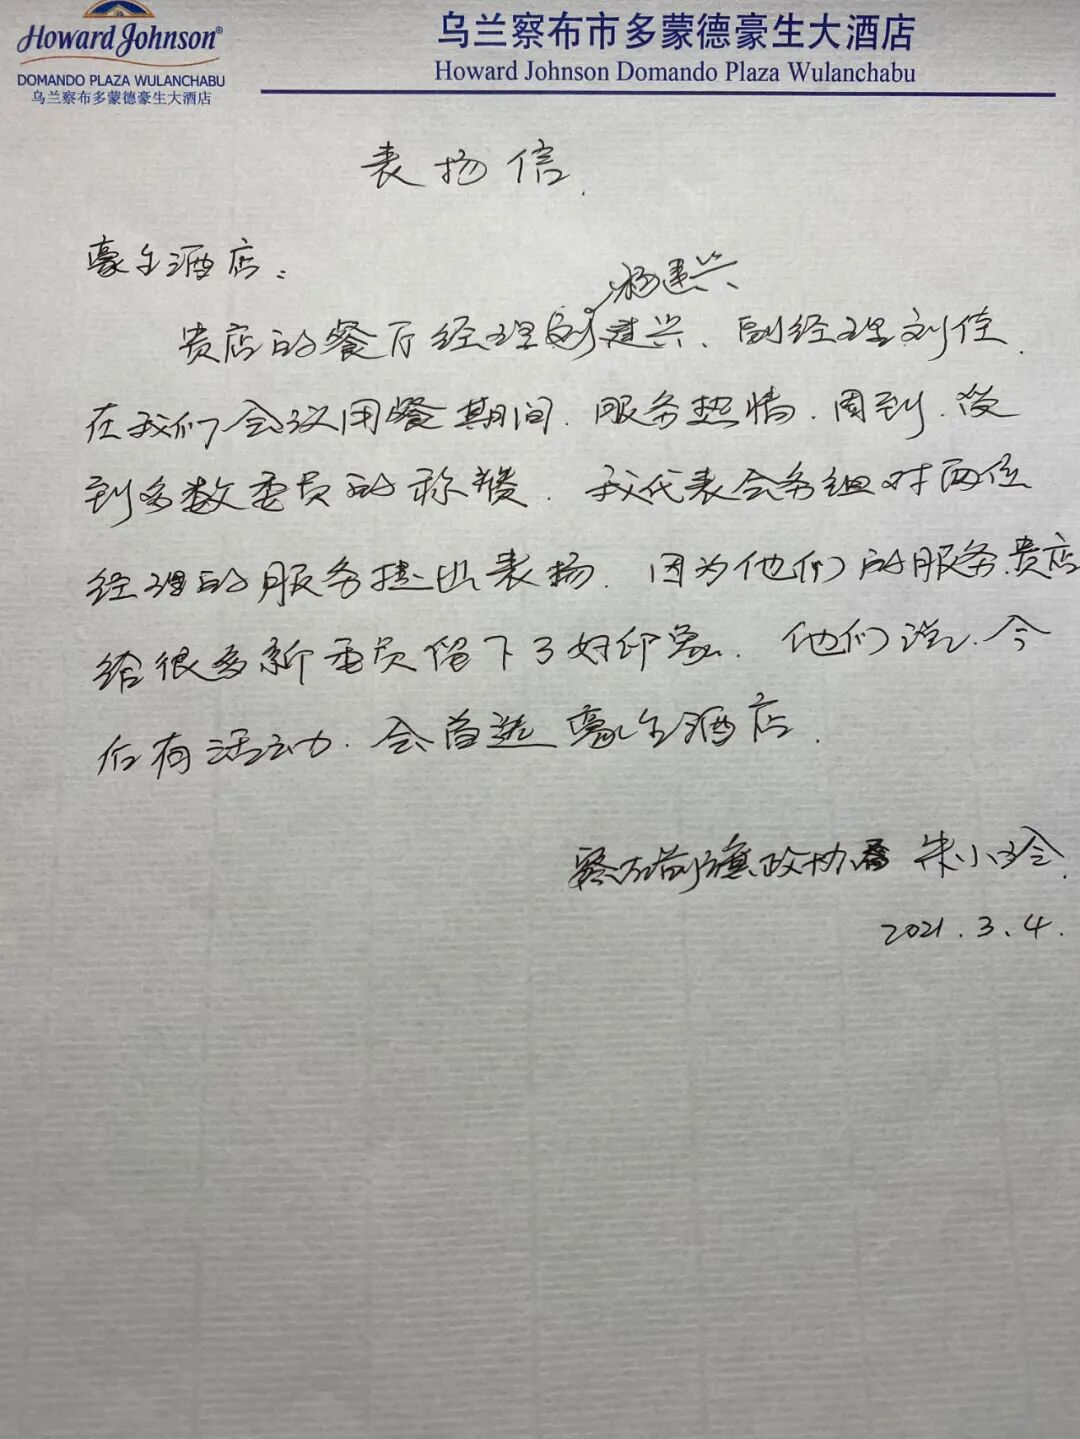 Howard Johnson®
DOMANDO PLAZA WULANCHABU
乌兰察布多蒙德豪生大酒店
乌兰察布市多蒙德豪生大酒店
Howard Johnson Domando Plaza Wulanchabu
表扬信.
豪生酒店:
杨建兴
贵店的餐厅经理刘建兴、副经理刘佳.
在我们会议用餐期间.服务热情.周到.受
到多数委员的称赞.我代表会务组对两位
经理的服务提出表扬.因为他们的服务.贵店
给很多新委员留下了好印象.他们说.今
后有活动.会首选豪生酒店.
察右前旗政协 朱小玲.
2021.3.4.